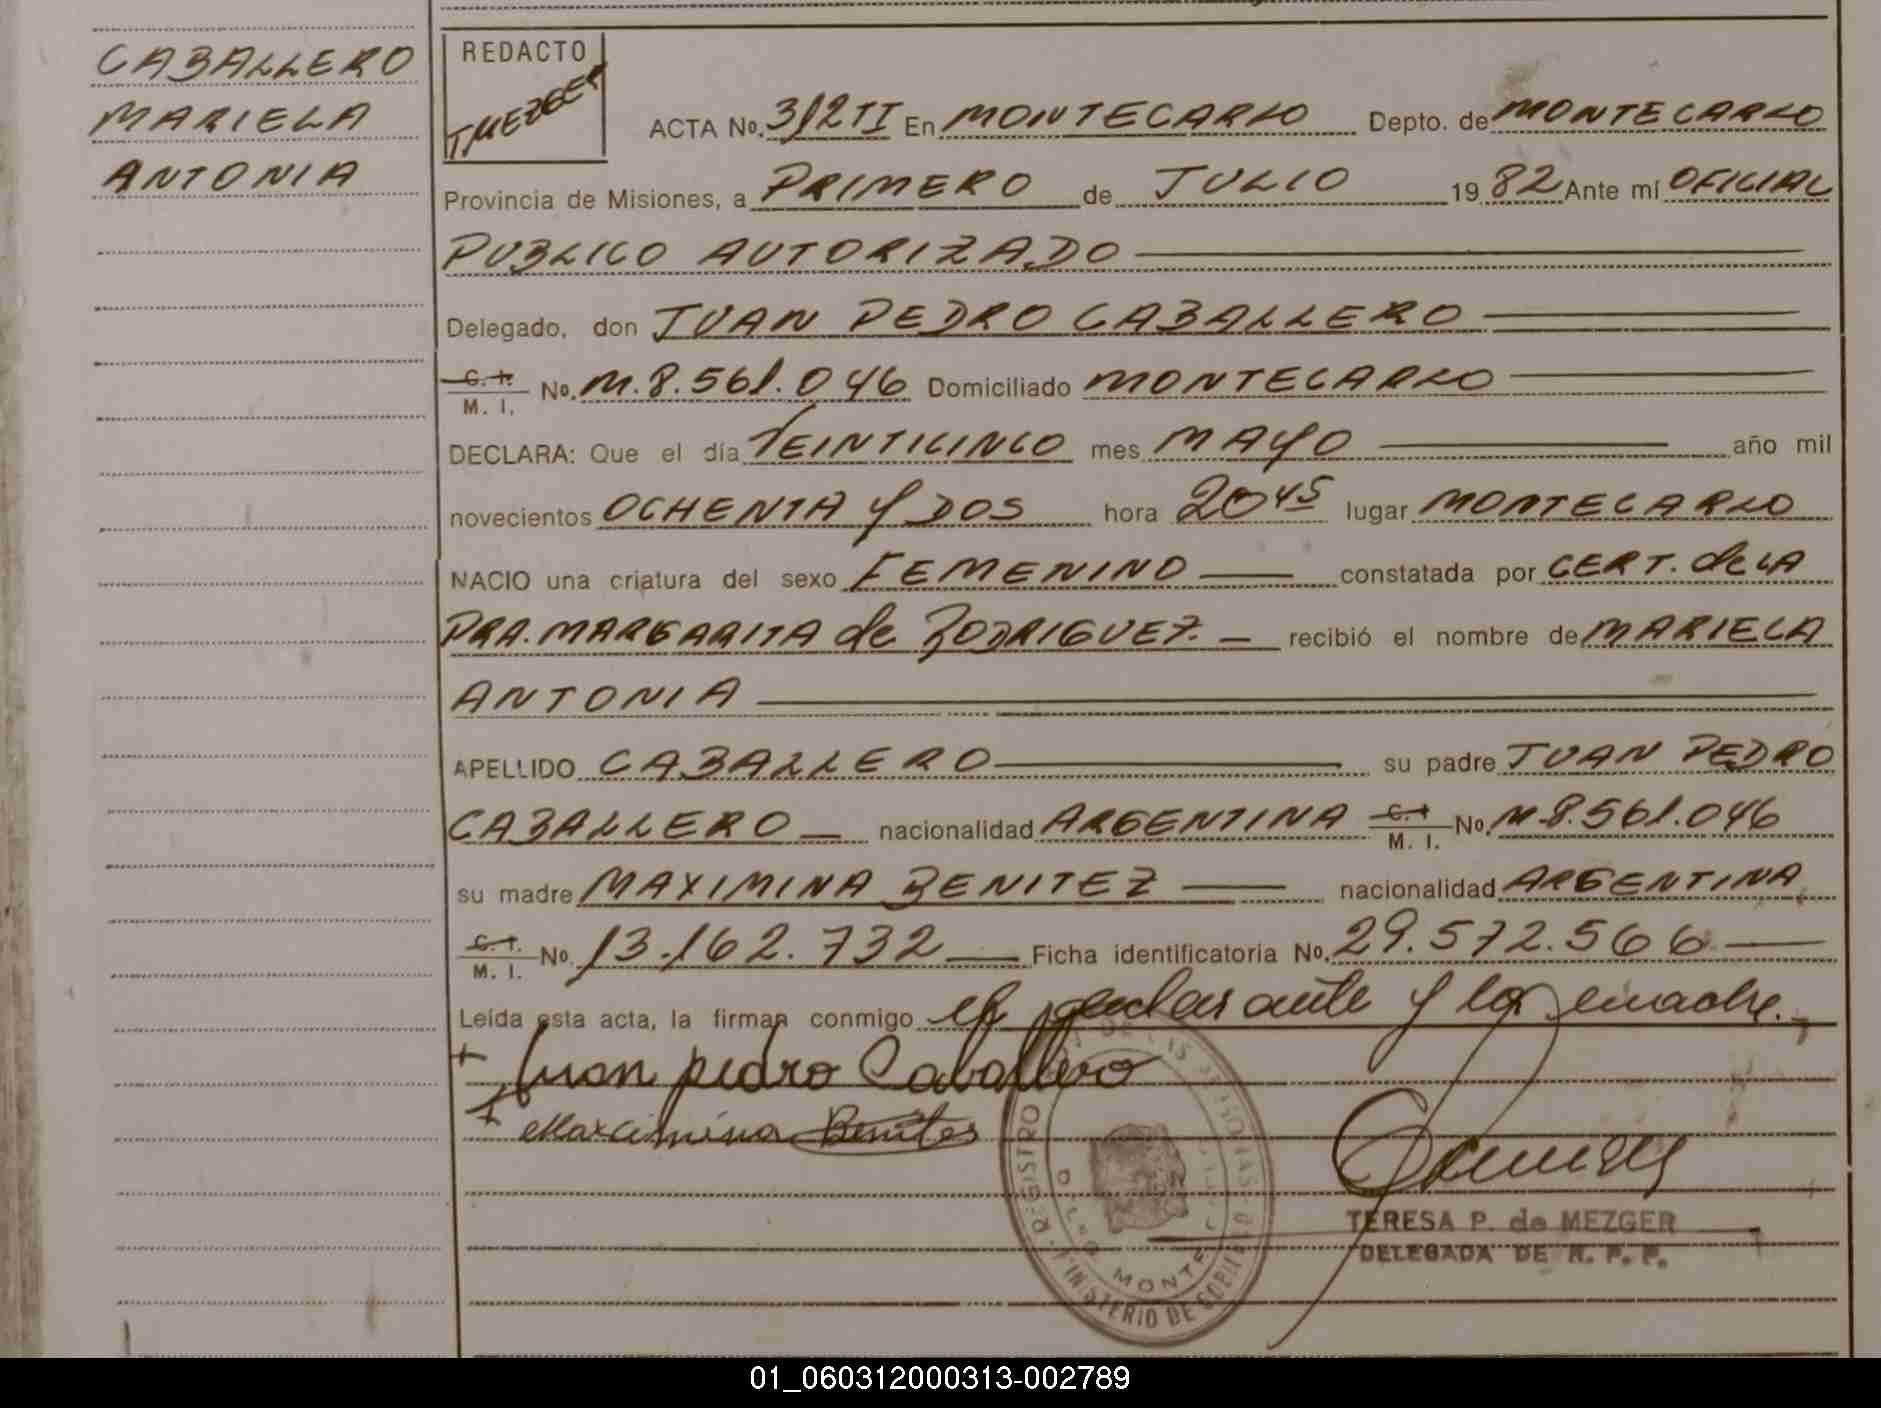 CABALLERO
MARIELA
ANTONIA
REDACTO
T.MEZGER
ACTA No. 312 TI En MONTECARLO Depto. de MONTECARLO
Provincia de Misiones, a PRIMERO de JULIO 19 82 Ante mí OFICIAL
PUBLICO AUTORIZADO
Delegado, don JUAN PEDRO CABALLERO
C. I. M. I. No. M.8.561.046 Domiciliado MONTECARLO
DECLARA: Que el día VEINTICINCO mes MAYO año mil
novecientos OCHENTA y DOS hora 20 45 lugar MONTECARLO
NACIO una criatura del sexo FEMENINO constatada por CERT. de LA
DRA. MARGARITA de RODRIGUEZ. recibió el nombre de MARIELA
ANTONIA
APELLIDO CABALLERO su padre JUAN PEDRO
CABALLERO nacionalidad ARGENTINA C. I. M. I. No. M.8.561.046
su madre MAXIMINA BENITEZ nacionalidad ARGENTINA
C. I. M. I. No. 13.162.732 Ficha identificatoria No. 29.572.566
Leída esta acta, la firman conmigo el declarante y la madre.
+ Juan pedro Caballero
+ Maximina Benites
REGISTRO DE LAS PERSONAS
MINISTERIO DE GOBIERNO
TERESA P. de MEZGER
DELEGADA DE R. P. P.
01_060312000313-002789